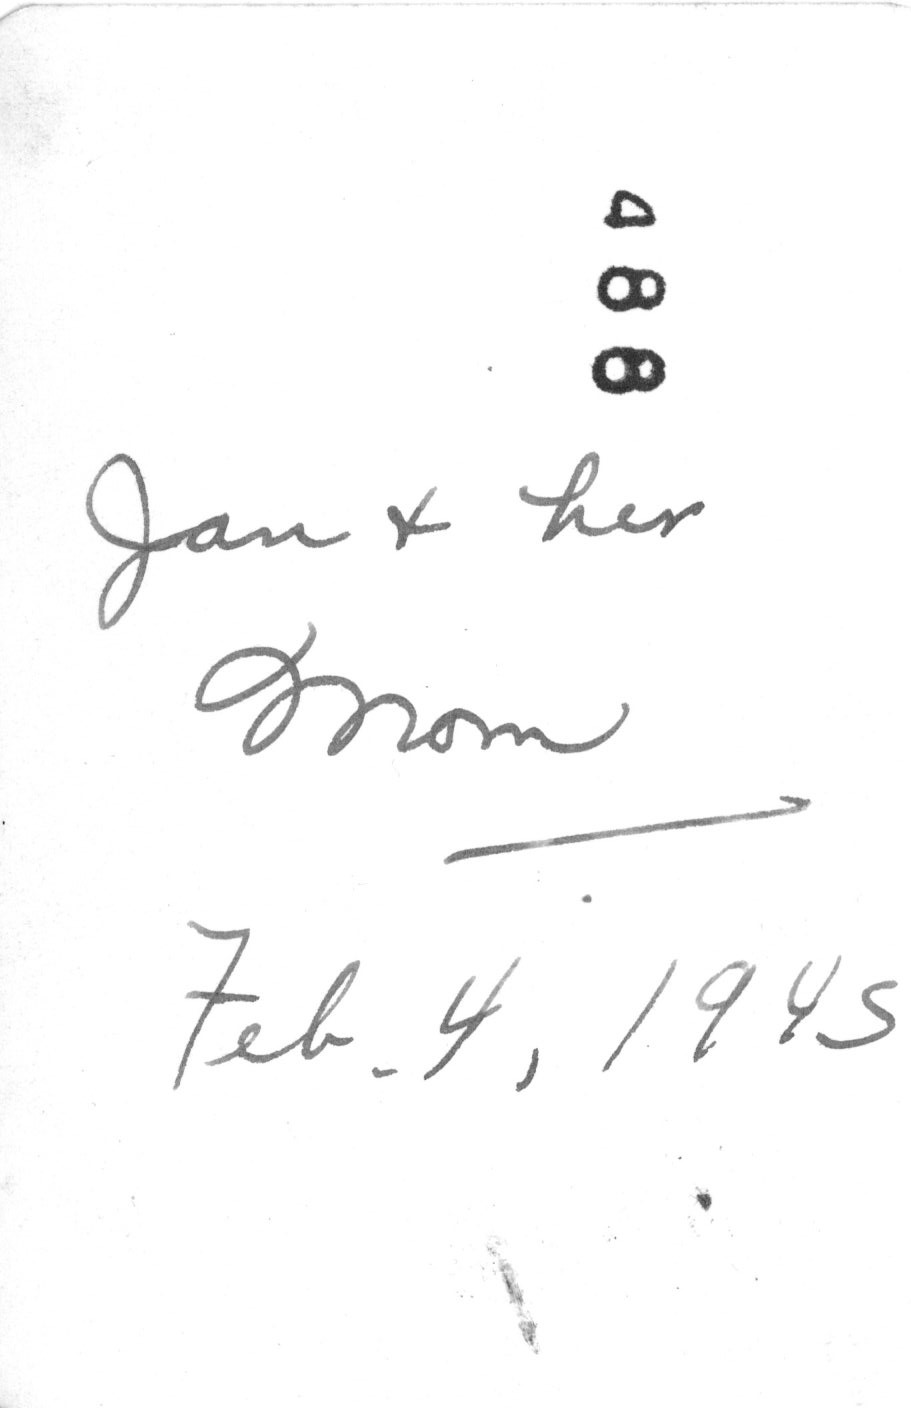 488
Jan & her
Mom
Feb. 4, 1945